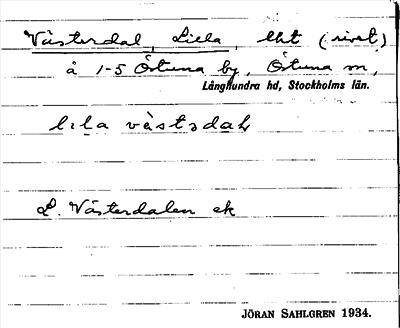 Västerdal, Lilla, lht (rivet)
å 1-5 Östuna by, Östuna sn,
Långhundra hd, Stockholms län.
lıla västədaḷ
L. Västerdalen ek
JÖRAN SAHLGREN 1934.